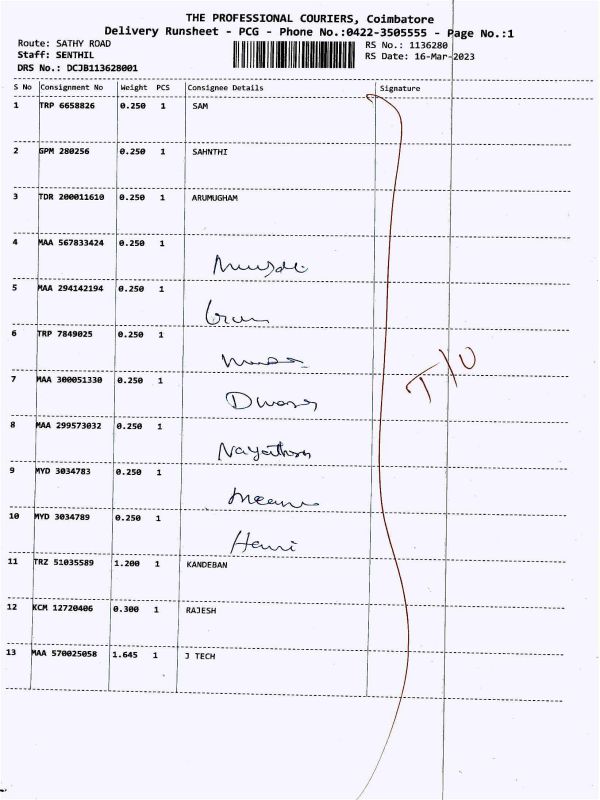 THE PROFESSIONAL COURIERS, Coimbatore
Delivery Runsheet - PCG - Phone No.:0422-3505555 - Page No.:1
Route: SATHY ROAD RS No.: 1136280
Staff: SENTHIL RS Date: 16-Mar-2023
DRS No.: DCJB113628001
S No Consignment No Weight PCS Consignee Details Signature
1 TRP 6658826 0.250 1 SAM
2 GPM 280256 0.250 1 SAHNTHI
3 TDR 200011610 0.250 1 ARUMUGHAM
4 MAA 567833424 0.250 1
5 MAA 294142194 0.250 1
6 TRP 7849025 0.250 1
7 MAA 300051330 0.250 1
8 MAA 299573032 0.250 1
9 MYD 3034783 0.250 1
10 MYD 3034789 0.250 1
Hani
11 TRZ 51035589 1.200 1 KANDEBAN
12 KCM 12720406 0.300 1 RAJESH
13 MAA 570025058 1.645 1 J TECH